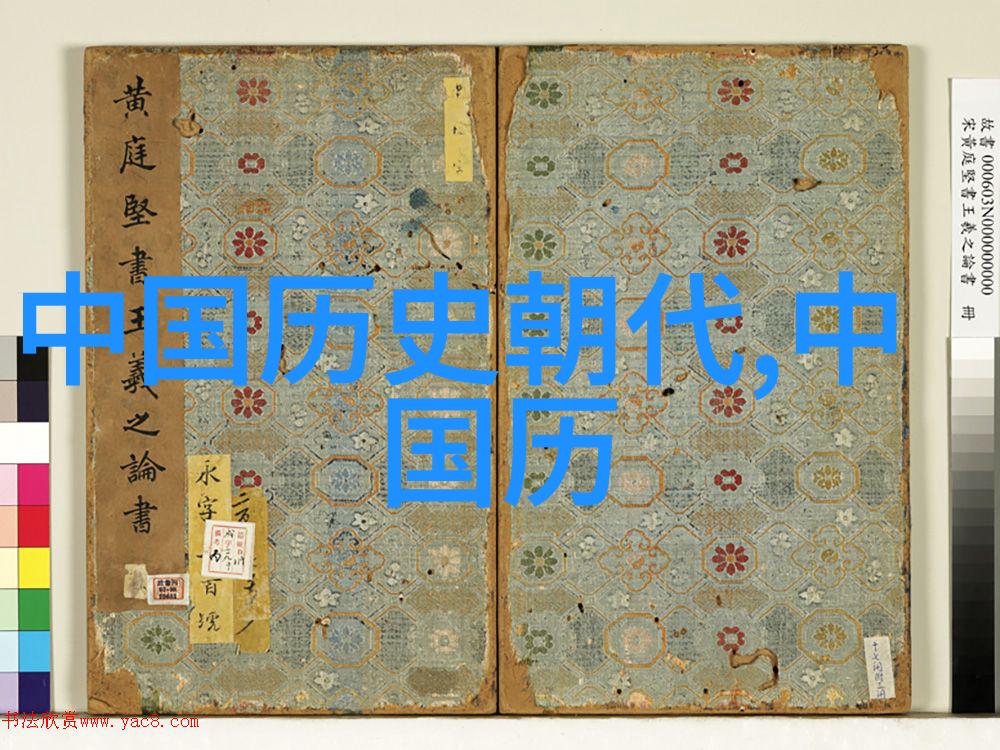 中国历史朝代,中
国历
黄庭堅書王羲之論書
永字
百號
故書 000603N000000000
宋黄庭堅書王羲之論書 冊
书法欣赏www.yac8.com